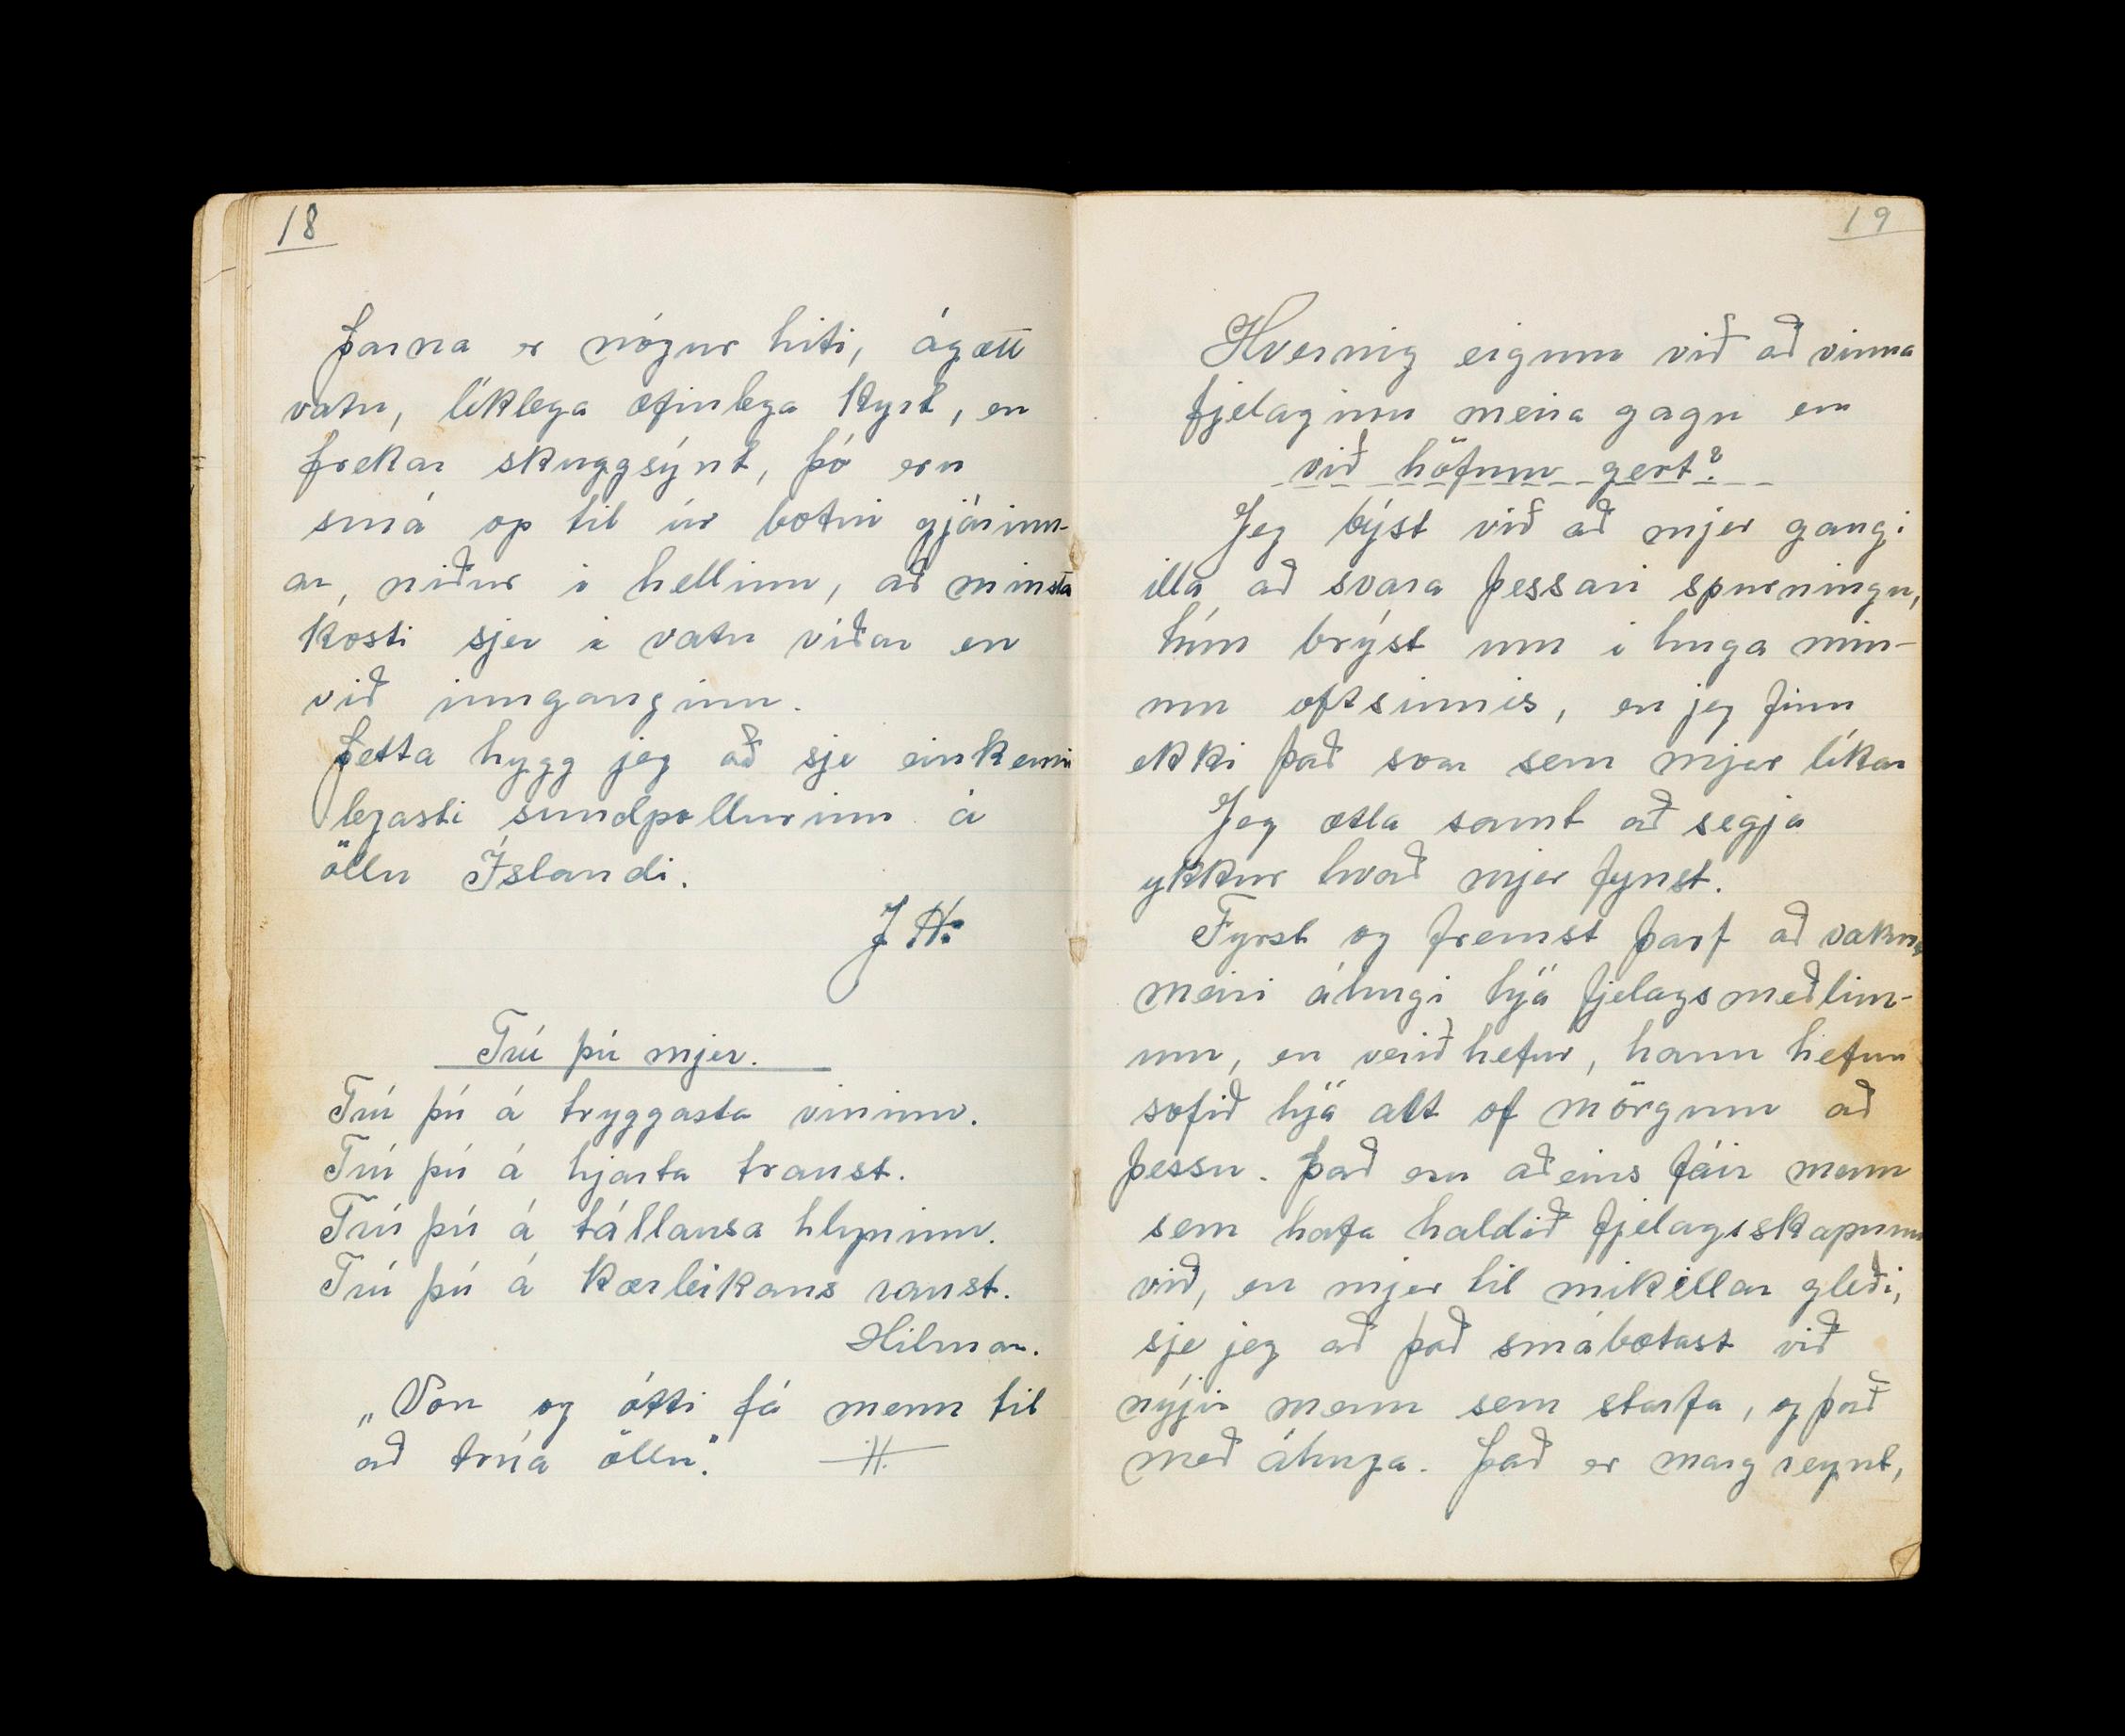 18
Þarna er nógur hiti, ágætt
vatn, líklega æfinlega kyrt, en
frekar skuggsýnt, þó eru
smá op til úr botni gjárinn-
ar, niður í hellinn, að minsta
kosti sjer í vatn víðar en
við innganginn.
Þetta hygg jeg að sje einkenni
legasti sundpollurinn á
öllu Íslandi.
J H.
Trú þú mjer.
Trú þú á tryggasta vininn.
Trú þú á hjarta traust.
Trú þú á tállausa hlyninn.
Trú þú á kærleikans raust.
Hilmar.
„Von og ótti fá menn til
að trúa öllu."    H.
19
Hvernig eigum við að vinna
fjelaginu meira gagn en
við höfum gert?
Jeg býst við að mjer gangi
illa að svara þessari spurningu,
hún brýst um í huga mín-
um oftsinnis, en jeg finn
ekki það svar sem mjer líkar
Jeg ætla samt að segja
ykkur hvað mjer fynst.
Fyrst og fremst þarf að vakna
meiri áhugi hjá fjelagsmeðlim-
um, en verið hefur, hann hefur
sofið hjá alt of mörgum að
þessu. Það eru aðeins fáir menn
sem hafa haldið fjelagsskapnum
við, en mjer til mikillar gleði,
sje jeg að það smábætast við
nýjir menn sem starfa, og það
með áhuga. Það er marg reynt,